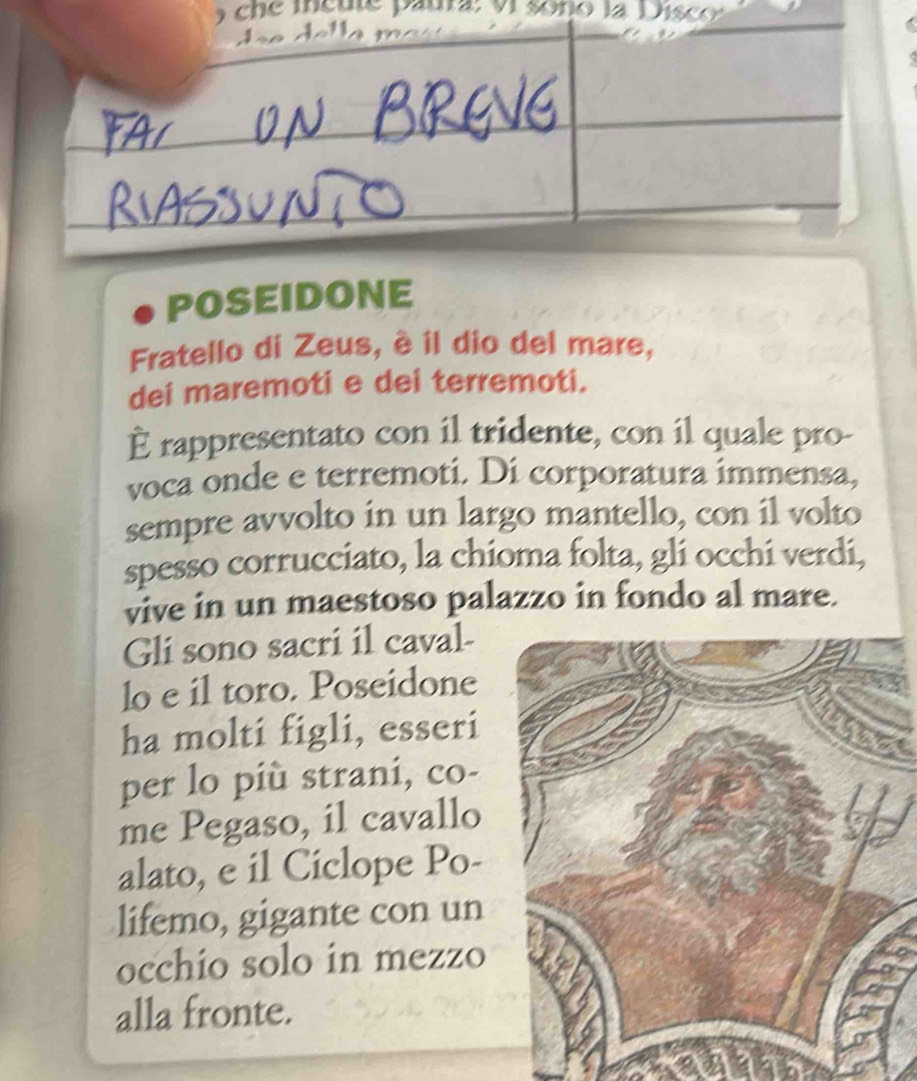 che incute paura: vi sono la Discor
FAI UN BREVE
RIASSUNTO
• POSEIDONE
Fratello di Zeus, è il dio del mare,
dei maremoti e dei terremoti.
È rappresentato con il tridente, con il quale pro-
voca onde e terremoti. Di corporatura immensa,
sempre avvolto in un largo mantello, con il volto
spesso corrucciato, la chioma folta, gli occhi verdi,
vive in un maestoso palazzo in fondo al mare.
Gli sono sacri il caval-
lo e il toro. Poseidone
ha molti figli, esseri
per lo più strani, co-
me Pegaso, il cavallo
alato, e il Ciclope Po-
lifemo, gigante con un
occhio solo in mezzo
alla fronte.